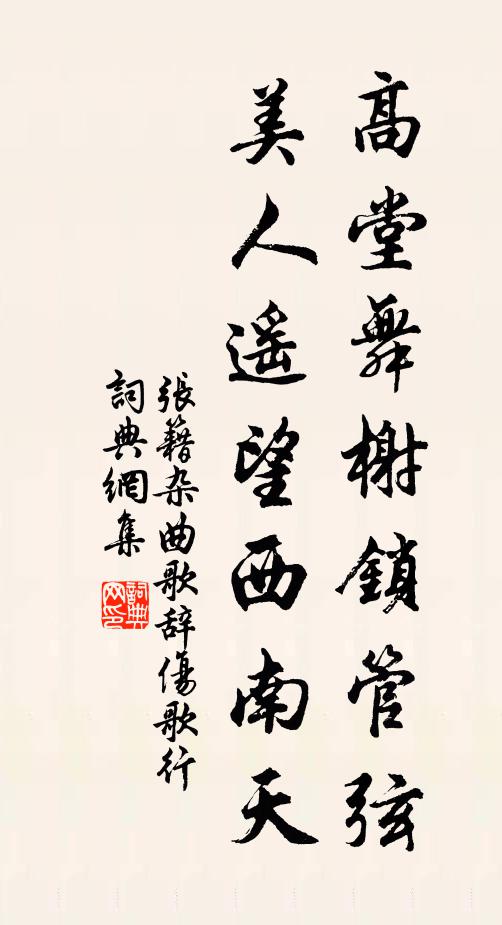 高堂舞榭鎖管弦
美人遥望西南天
張籍杂曲歌辞傷歌行
詞典網集
詞典网印